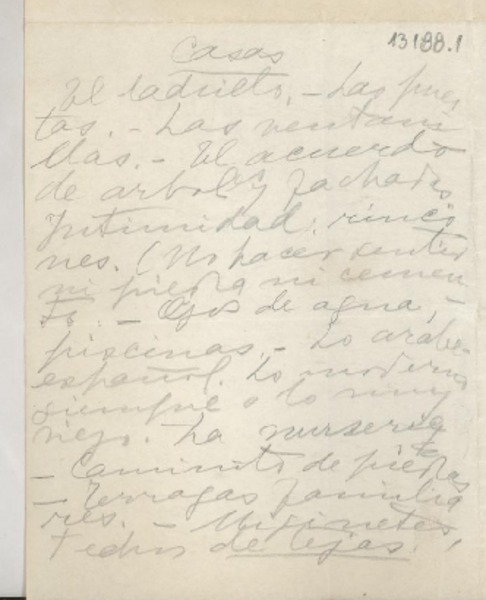 13188.1
Casas
El ladrillo. - Las puer
tas. - Las ventani
llas. - El acuerdo
de arbol y fachadas
Intimidad: rinco
nes. (No hacer sentir
ni piedra ni cemen
to. - Ojos de agua, -
piscinas. - Lo arabe-
español. Lo moderno
siempre o lo muy
viejo. La nursería
- Caminito de piedras
- Terrazas familia
res. -
techos de tejas.